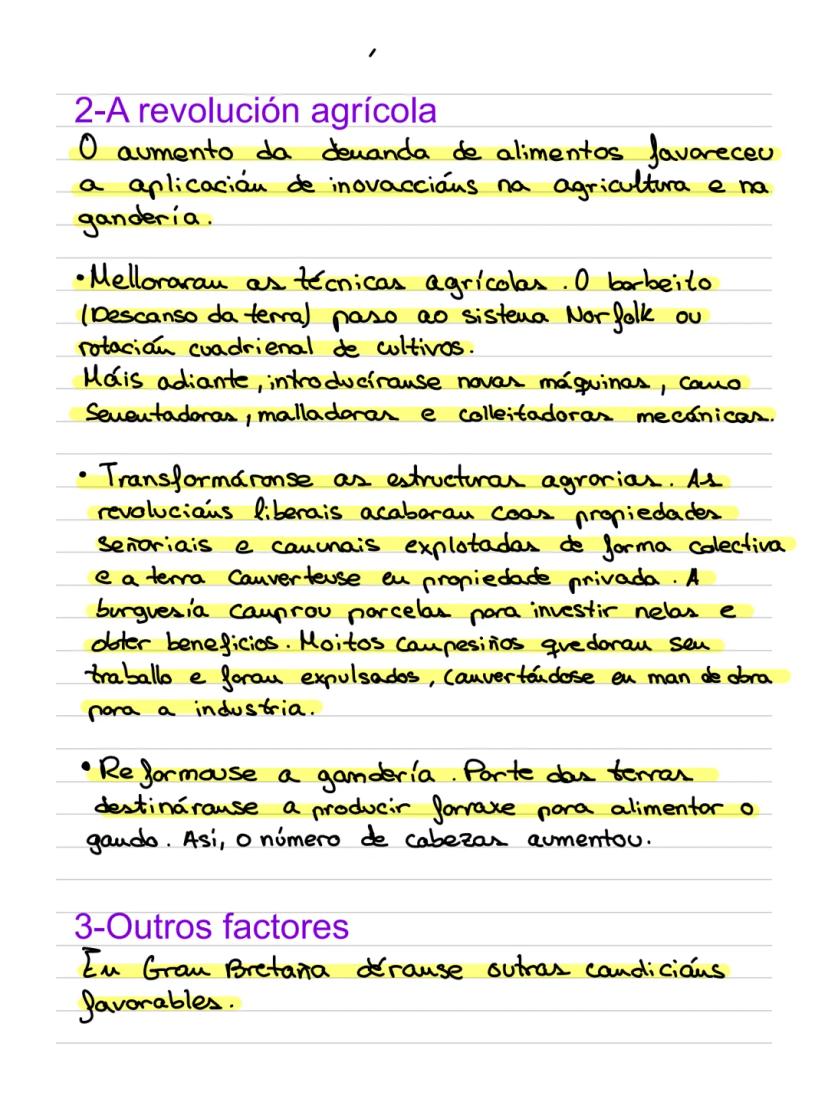 2-A revolución agrícola
O aumento da demanda de alimentos favareceu
a aplicación de inovaccións na agricultura e na
gandería.
•Melloraran as técnicas agrícolas. O barbeito
(Descanso da terra) paso ao sistema Norfolk ou
rotación cuadrienal de cultivos.
Máis adiante, introducíronse novas máquinas, como
Sementadoras, malladoras e colleitadoras mecánicas.
• Transformáronse as estructuras agrarias. As
revolucións liberais acabaran coas propiedades
señoriais e comunais explotadas de forma colectiva
e a terra converteuse en propiedade privada. A
burguesía comprou parcelas para investir nelas e
obter beneficios. Moitos campesiños quedaran sen
traballo e foran expulsados, convertóndose en man de obra
para a industria.
• Reformouse a gandería. Parte das terras
destináronse a producir forraxe para alimentar o
gando. Así, o número de cabezas aumentou.
3-Outros factores
En Gran Bretaña déronse outras condicións
favorables.